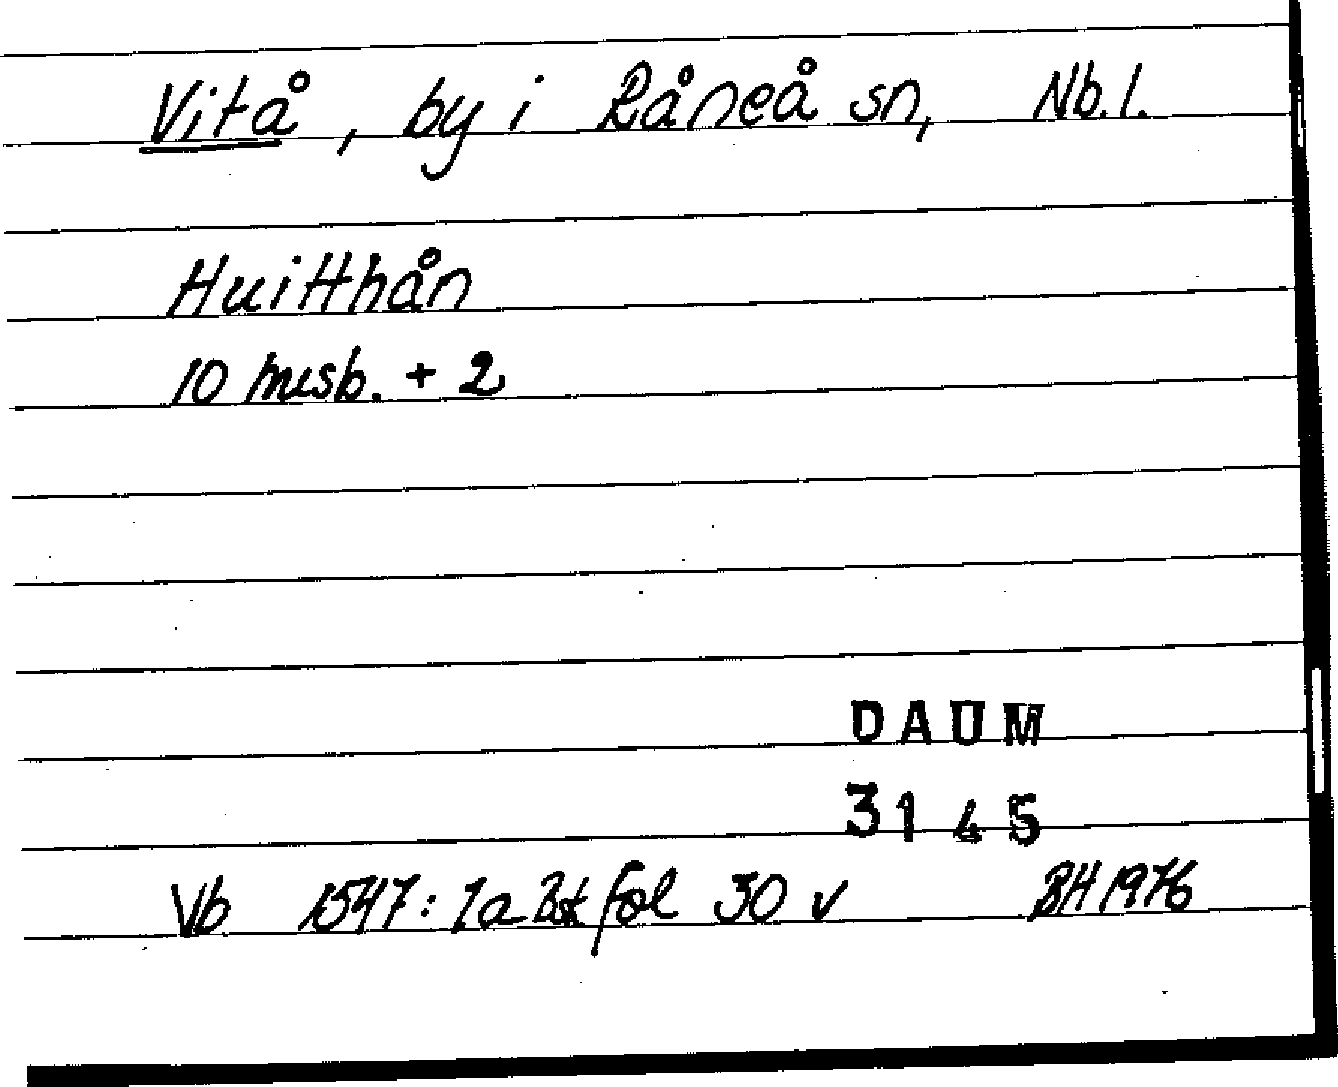 Vitå, by i Råneå sn, Nb.l.
Huitthån
10 mrsb. + 2
DAUM
3145
Vb 1547: 7a Bsk fol 30 v BH 1976